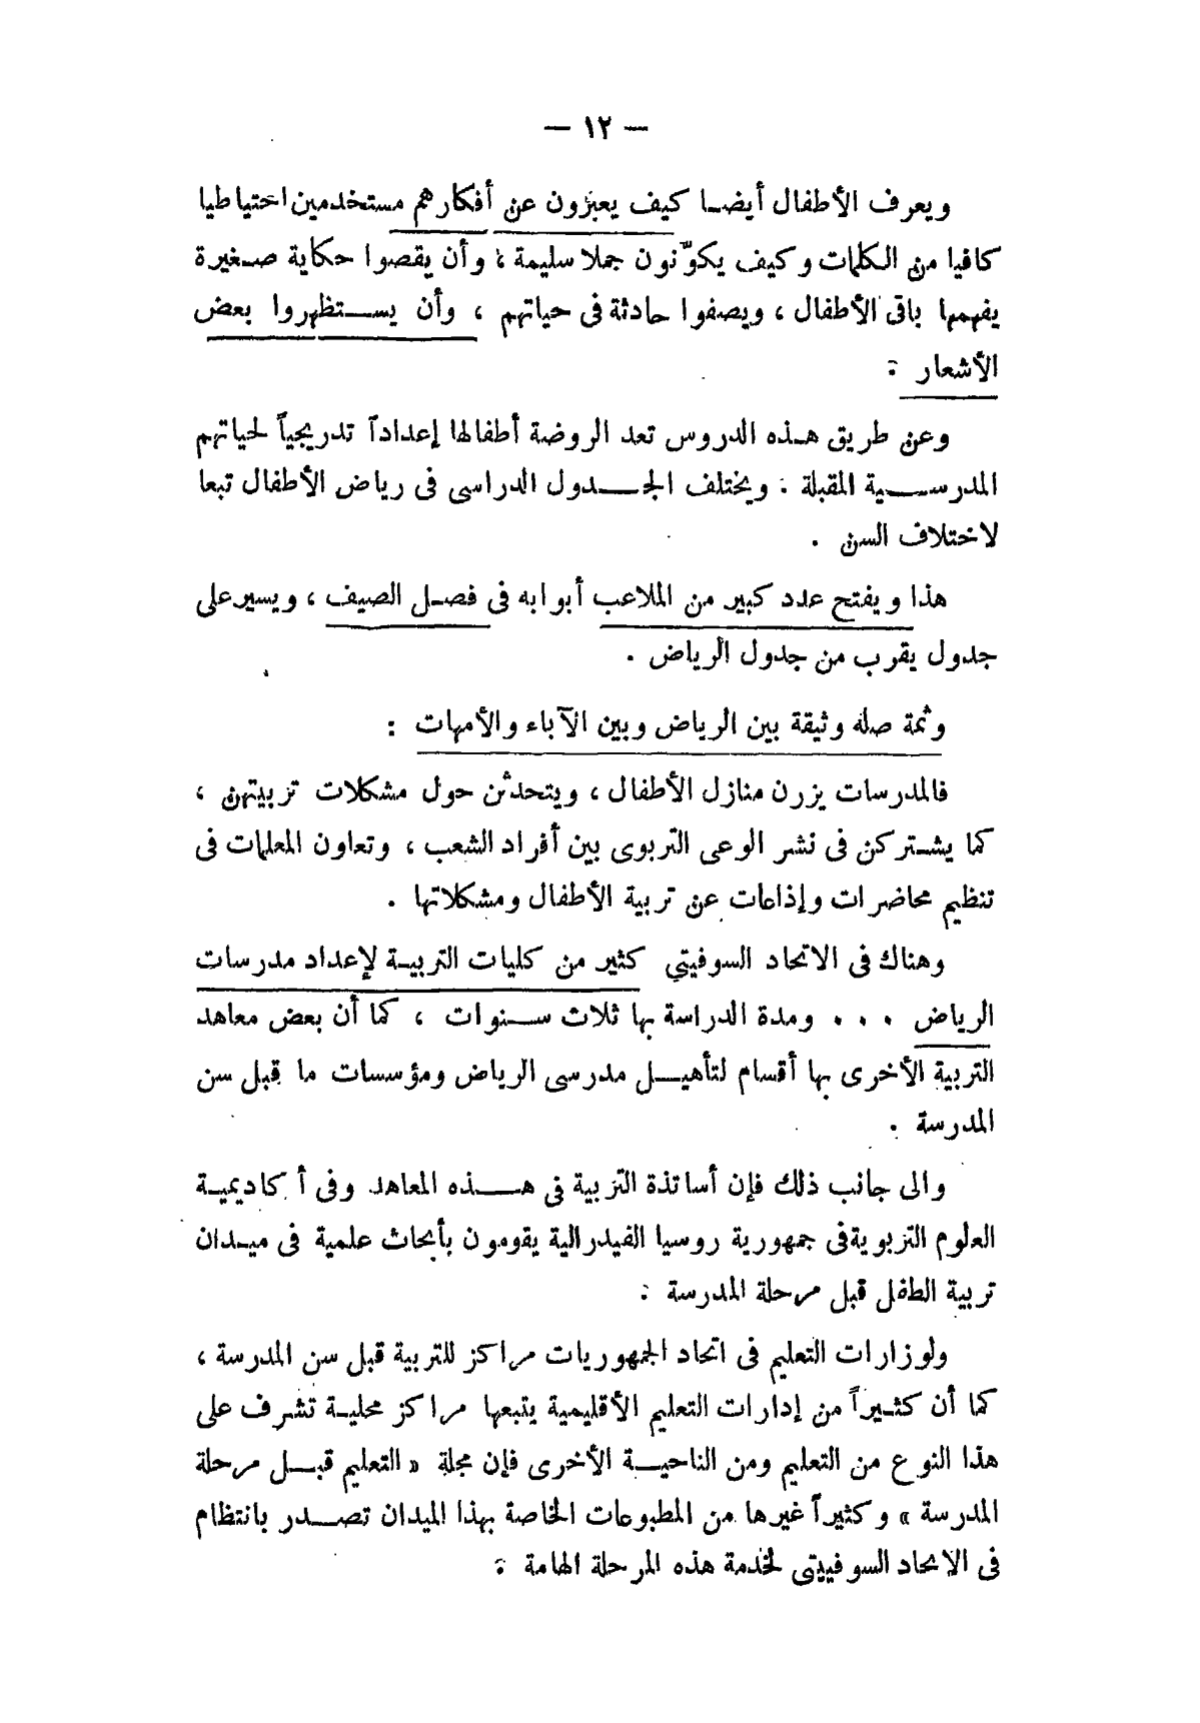 — ١٢ —
ويعرف الأطفال أيضا كيف يعبرون عن أفكارهم مستخدمين احتياطيا
كافيا من الكلمات وكيف يكوّنون جملا سليمة ، وأن يقصوا حكاية صغيرة
يفهمها باقى الأطفال ، ويصفوا حادثة فى حياتهم ، وأن يستظهروا بعض
الأشعار :
وعن طريق هذه الدروس تعد الروضة أطفالها إعداداً تدريجياً لحياتهم
المدرسية المقبلة : ويختلف الجدول الدراسى فى رياض الأطفال تبعا
لاختلاف السن .
هذا ويفتح عدد كبير من الملاعب أبوابه فى فصل الصيف ، ويسير على
جدول يقرب من جدول الرياض .
وثمة صله وثيقة بين الرياض وبين الآباء والأمهات :
فالمدرسات يزرن منازل الأطفال ، ويتحدثن حول مشكلات تربيتهن ،
كما يشتركن فى نشر الوعى التربوى بين أفراد الشعب ، وتعاون المعلمات فى
تنظيم محاضرات وإذاعات عن تربية الأطفال ومشكلاتها .
وهناك فى الاتحاد السوفيتي كثير من كليات التربية لإعداد مدرسات
الرياض . . . ومدة الدراسة بها ثلاث سنوات ، كما أن بعض معاهد
التربية الأخرى بها أقسام لتأهيل مدرسى الرياض ومؤسسات ما قبل سن
المدرسة .
والى جانب ذلك فإن أساتذة التربية فى هذه المعاهد وفى أكاديمية
العلوم التربوية فى جمهورية روسيا الفيدرالية يقومون بأبحاث علمية فى ميدان
تربية الطفل قبل مرحلة المدرسة :
ولوزارات التعليم فى اتحاد الجمهوريات مراكز للتربية قبل سن المدرسة ،
كما أن كثيراً من إدارات التعليم الأقليمية يتبعها مراكز محلية تشرف على
هذا النوع من التعليم ومن الناحية الأخرى فإن مجلة « التعليم قبل مرحلة
المدرسة » وكثيراً غيرها من المطبوعات الخاصة بهذا الميدان تصدر بانتظام
فى الاتحاد السوفييتى لخدمة هذه المرحلة الهامة :